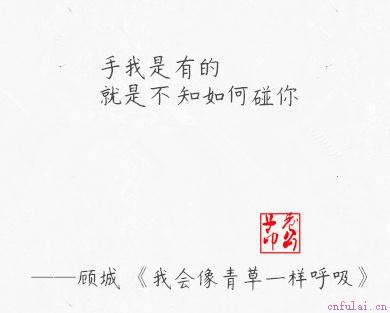 手我是有的
就是不知如何碰你
——顾城《我会像青草一样呼吸》
cnfulai.cn